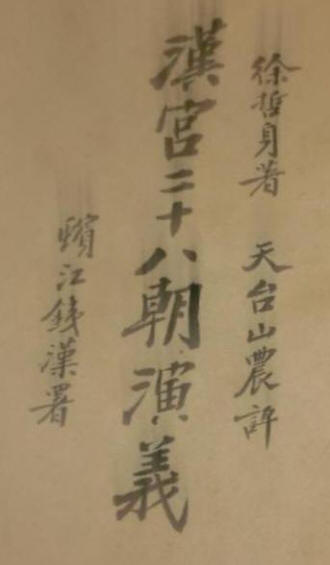 徐哲身著 天台山農評
漢宮二十八朝演義
江鐵漢署